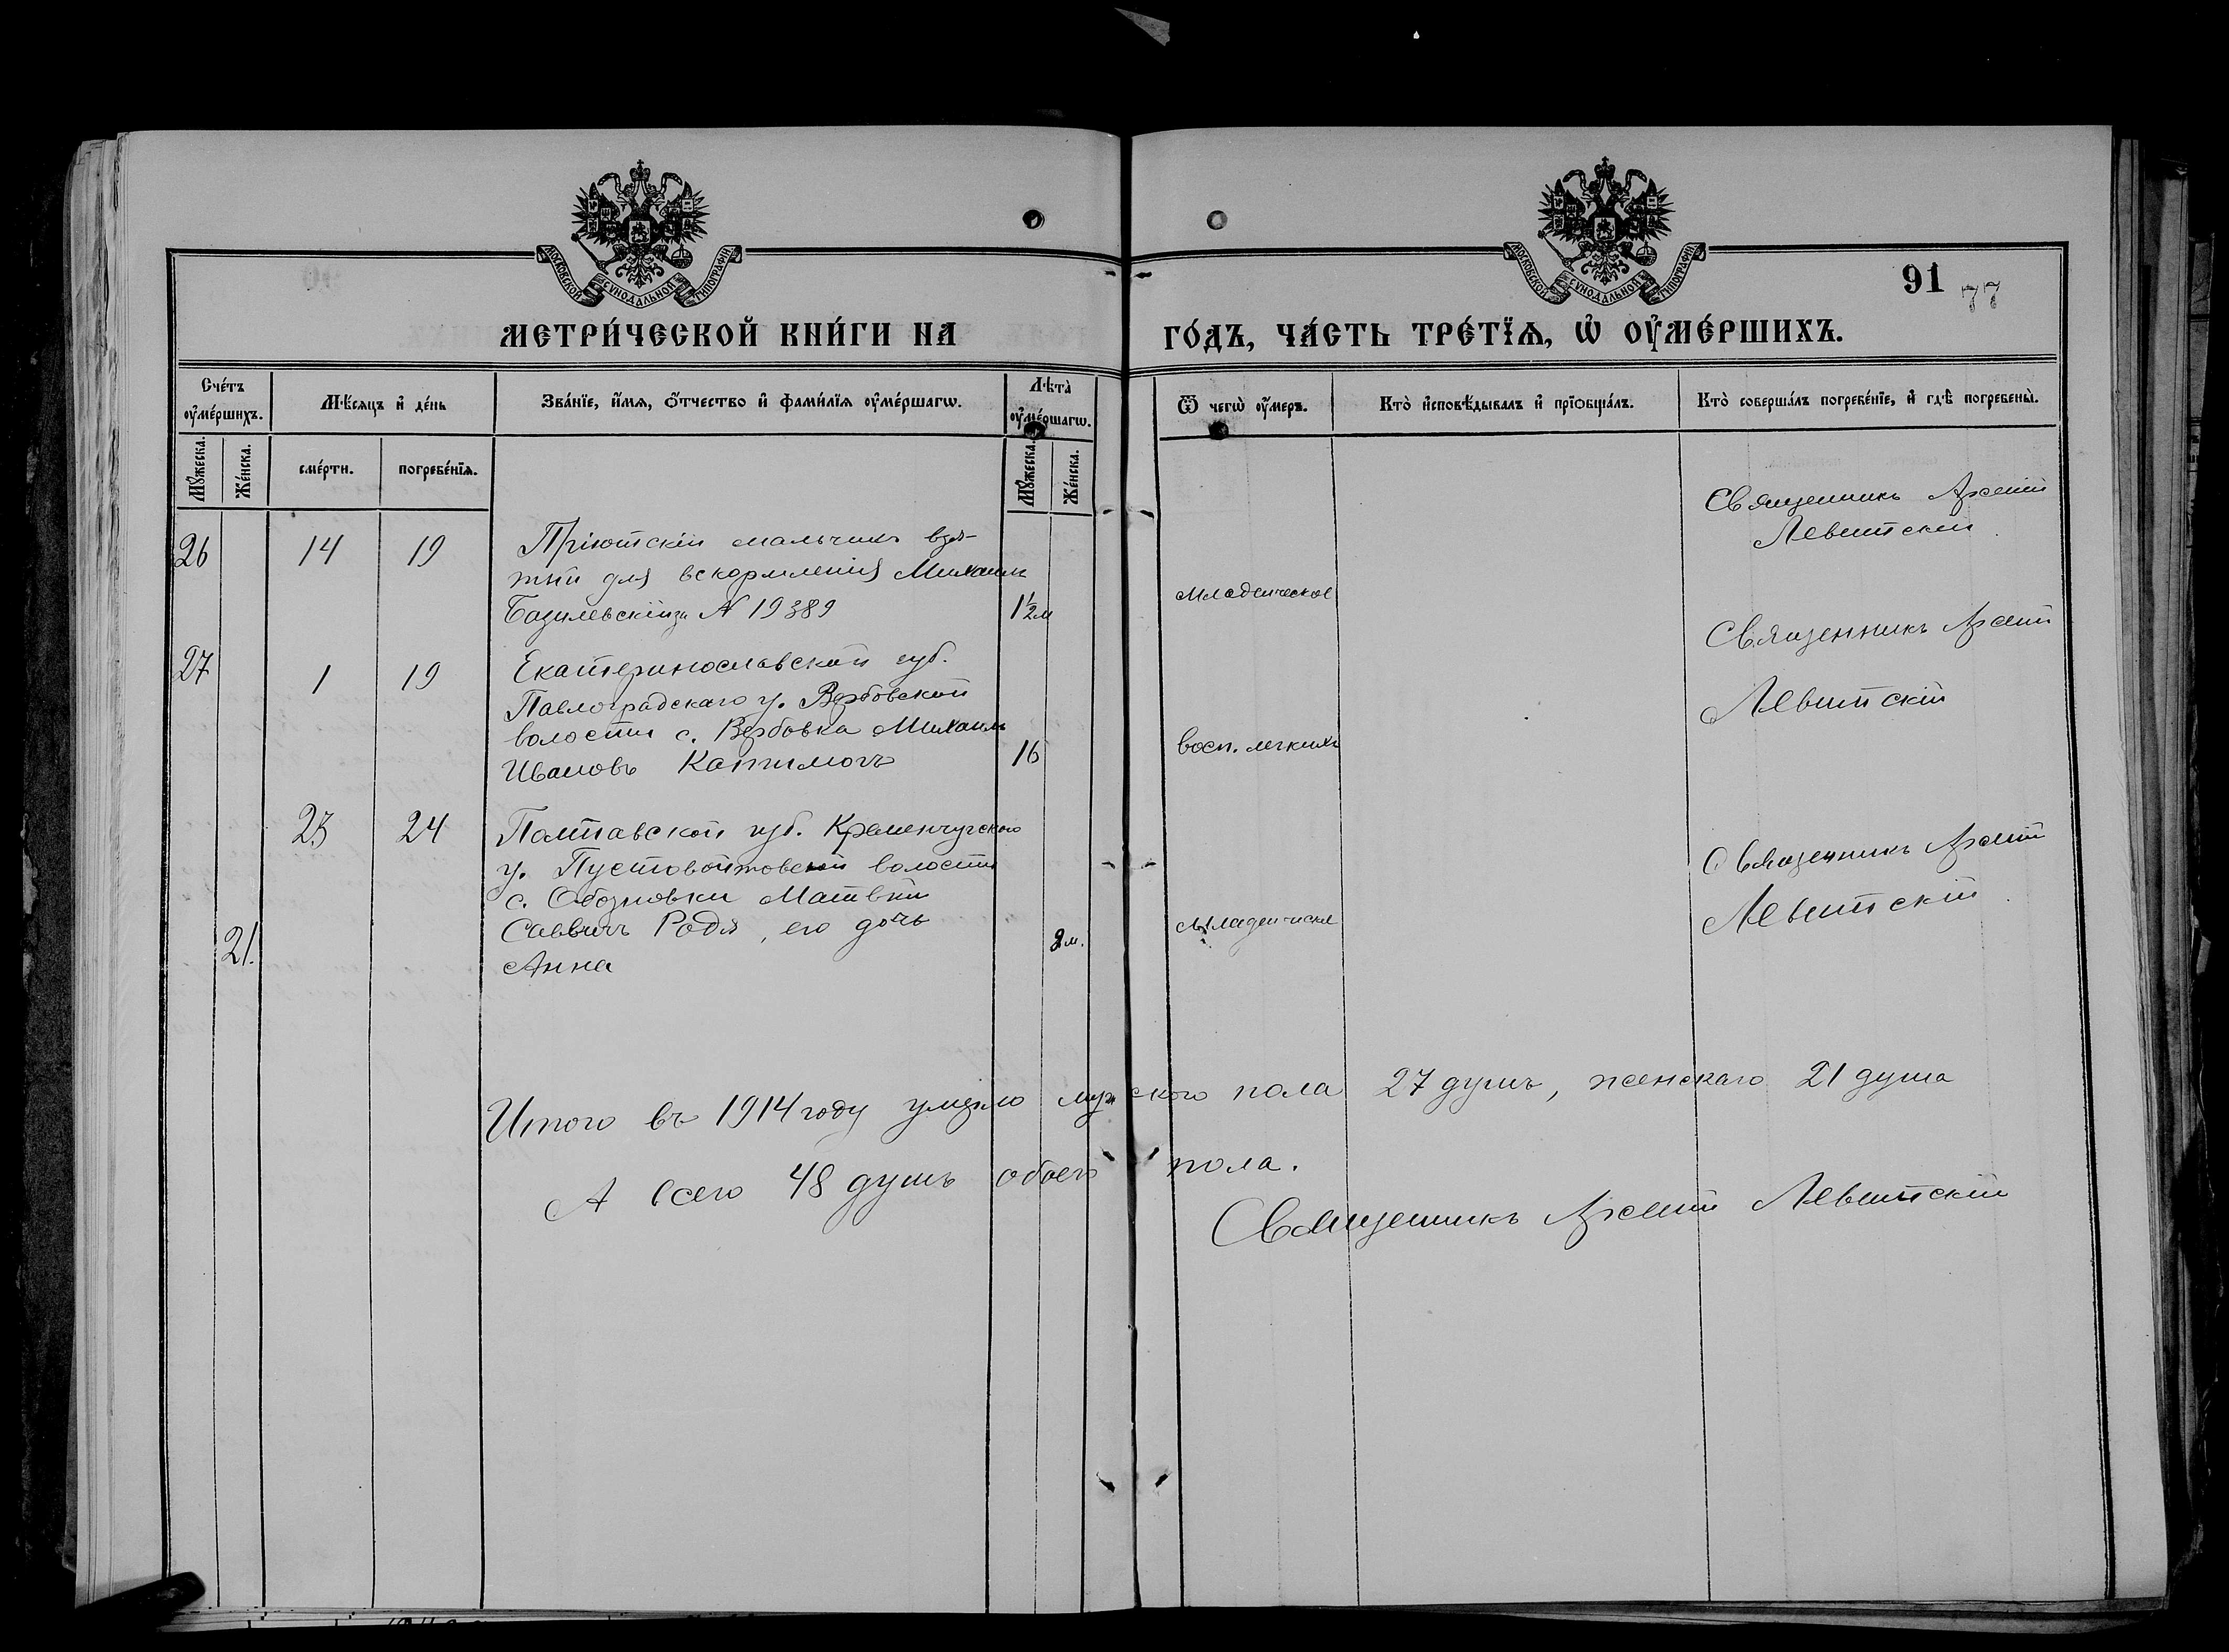 МОСКОВСКОЙ СѴНОДАЛЬНОЙ ТИПОГРАФІИ
МОСКОВСКОЙ СѴНОДАЛЬНОЙ ТИПОГРАФІИ
91
77
МЕТРИ́ЧЕСКОЙ КНИ́ГИ НА ГО́ДЪ, ЧА́СТЬ ТРЕ́ТЇѦ, Ѡ҆ ОУ҆МЕ́РШИХЪ.
Сче́тъ оу҆ме́ршихъ.
Мꙋ́жеска.
Же́нска.
Мѣ́сѧцъ и҆ де́нь
сме́рти.
погребе́нїѧ.
Зва́нїе, и҆́мѧ, ѻ҆́тчество и҆ фами́лїѧ оу҆ме́ршагѡ.
Лѣта̀ оу҆ме́ршагѡ.
Мꙋ́жеска.
Же́нска.
Ѿ чегѡ̀ оу҆́меръ.
Кто̀ и҆сповѣ́дывалъ и҆ прїѡбща́лъ.
Кто̀ соверша́лъ погребе́нїе, и҆ гдѣ̀ погребены̀.
26 14 19 Пріютскій мальчикъ взя-
тый для вскормленія Михаилъ
Базилевскій за N 19389 1½ м
Младенческое
Священникъ Арсеній
Левитскій
27 1 19 Екатеринославской губ.
Павлоградскаго у. Вербовской
волости с. Вербовка Михаилъ
Ивановъ 16
восп. легкихъ
Священникъ Арсеній
Левитскій
23 24 Полтавской губ. Кременчугскаго
у. Пустовойтовской волости
с. Обозновки Матвѣй
Саввичъ Родя, его дочь
21. Анна 2 м.
Младенческ
Священникъ Арсеній
Левитскій
Итого въ 1914 году умерло мужского пола 27 душъ, женскаго 21 душа
А всего 48 душъ обоего пола.
Священникъ Арсеній Левитскій